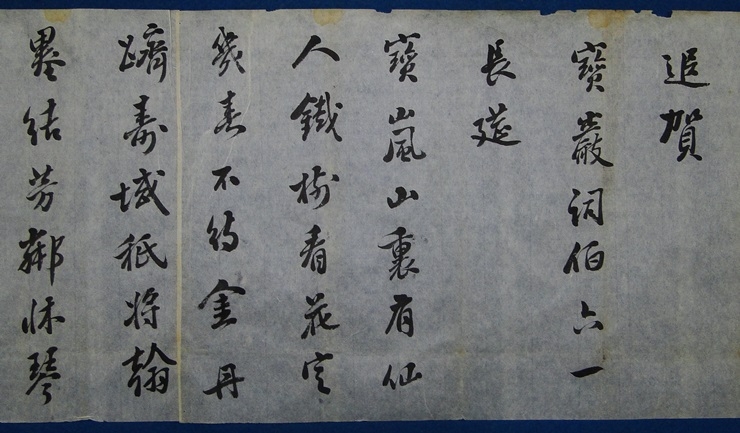 追賀
寶巖詞伯六一
長筵
寶嵐山裏有仙
人鐵樹看花定
幾春不待金丹
躋壽域秖將翰
墨結芳鄰怵琴